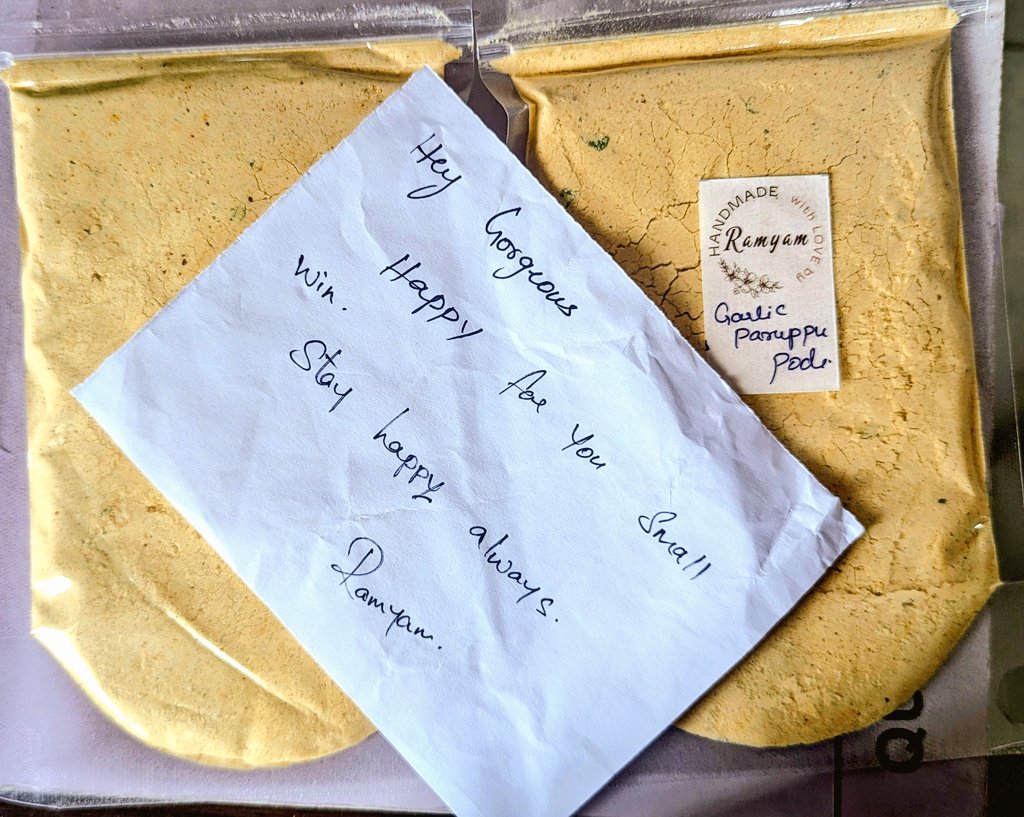 Hey Gorgeous
Happy for you Small
Win.
Stay happy always.
Ramyam.
HANDMADE with LOVE by
Ramyam
Garlic
Paruppu
Podi.
QU